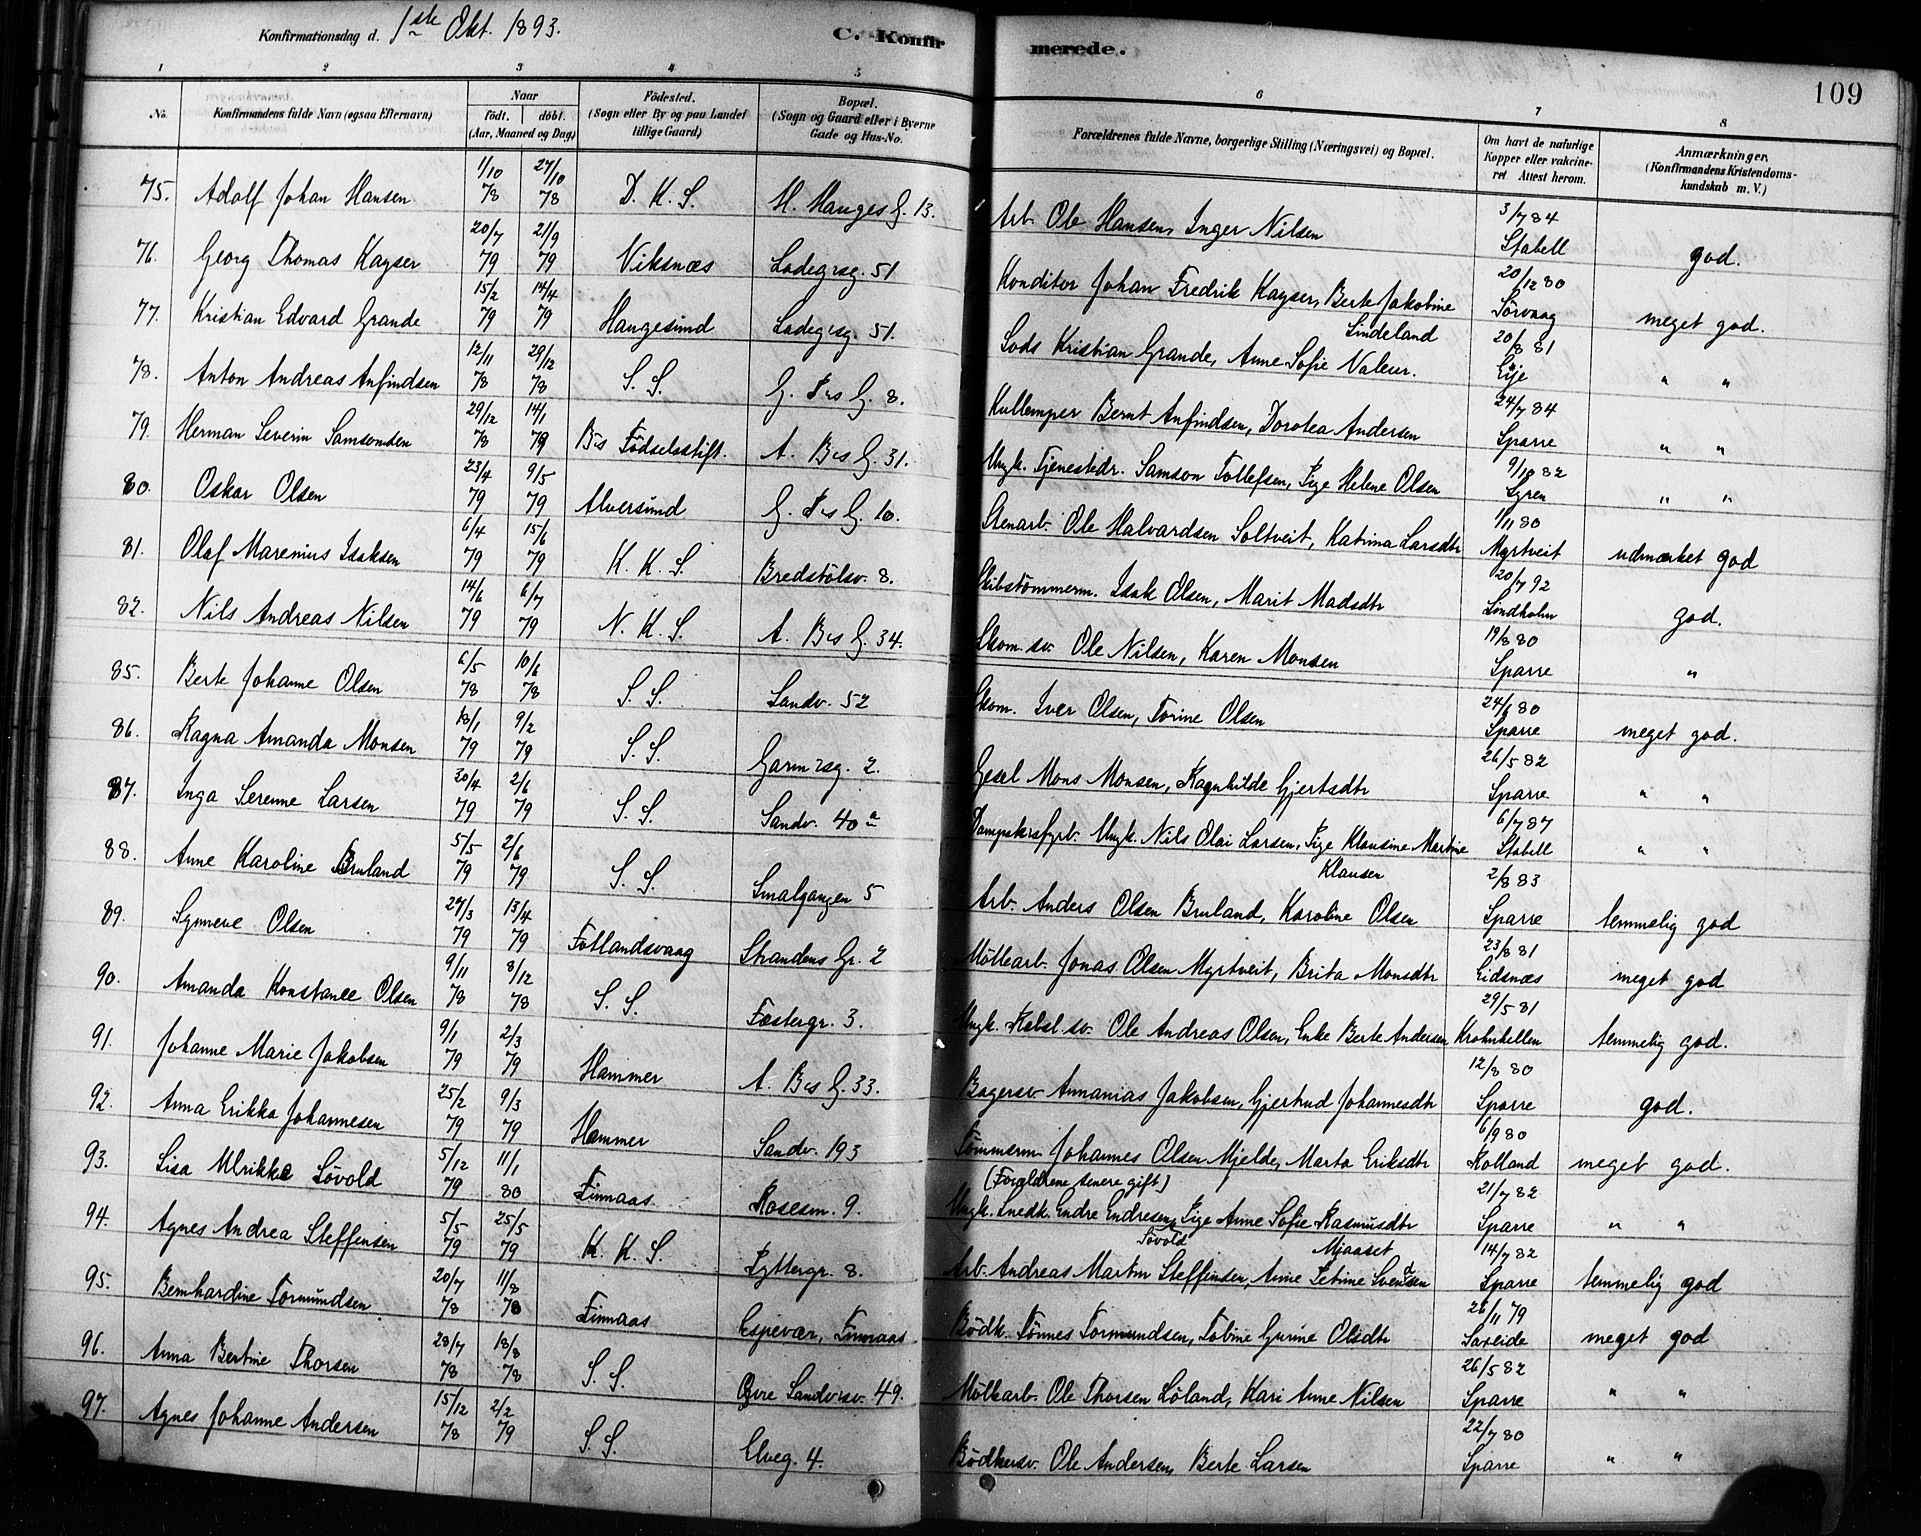 Konfirmationsdag d. 1ste Okt. 1893.
C. Konfirmerede.
109
1 2 3 4 5 6 7 8
No. | Konfirmandens fulde Navn (ogsaa Efternavn) | Naar födt. döbt. (Aar, Maaned og Dag) | Födested. (Sogn eller By og paa Landet tillige Gaard) | Bopæl. (Sogn og Gaard eller i Byerne Gade og Hus-No. | Forældrenes fulde Navne, borgerlige Stilling (Næringsvei) og Bopæl. | Om havt de naturlige Kopper eller vakcineret Attest herom. | Anmærkninger. (Konfirmandens Kristendomskundskab m. V.)
75. Adolf Johan Hansen 1/10 78 27/10 78 D. K. S. H. Hauges G. 13. Arb. Ole Hansen, Inger Nilsen 3/7 84 Stabell god.
76. Georg Thomas Kayser 20/7 79 21/9 79 Viksnæs Ladegrsg. 51 Konditor Johan Fredrik Kayser, Berte Jakobine Lindeland 20/12 80 Sörvaag meget god.
77. Kristian Edvard Grande 15/2 79 14/4 79 Haugesund Ladegrsg. 51. Lods Kristian Grande, Anne Sofie Valeur. 20/8 81 Eije " "
78. Anton Andreas Anfindsen 12/11 78 29/12 78 S. S. G. Prs G. 8. Kullemper Bernt Anfindsen, Dorotea Andersen 24/7 84 Sparre " "
79. Herman Severin Samsonsen 29/12 78 14/1 79 Bs Födselsstift. A. Bs G. 31. Ungk. Tjenestedr. Samson Tollefsen, Pige Helene Olsen 9/10 82 Lyren " "
80. Oskar Olsen 23/4 79 9/5 79 Alversund G. Prs G. 10. Stenarb. Ole Halvardsen Soltveit, Katrina Larsdtr 1/11 80 Myrtveit udmærket god
81. Olaf Marenius Isaksen 6/4 79 15/6 79 K. K. S. Bredstölsv. 8. Skibstömmerm. Isak Olsen, Marit Madsdtr 20/7 92 Lindholm god.
82. Nils Andreas Nilsen 14/6 79 6/7 79 N. K. S. A. Bs G. 34. Skom. sv. Ole Nilsen, Karen Monsen 19/8 80 Sparre "
85. Berte Johanne Olsen 6/5 78 10/6 78 S. S. Sandv. 52 Skom. Iver Olsen, Torine Olsen 24/6 80 Sparre meget god.
86. Ragna Amanda Monsen 18/1 79 9/2 79 S. S. Garversg. 2. Gesel Mons Monsen, Ragnhilde Gjertsdtr 26/5 82 Sparre " "
87. Inga Serenne Larsen 30/4 79 2/6 79 S. S. Sandv. 40 a Dampskrsfyrb. Ungk. Nils Olai Larsen, Pige Klausine Martine Klausen 6/7 87 Stabell " "
88. Anne Karoline Bruland 5/5 79 2/6 79 S. S. Smalgangen 5 Arb. Anders Olsen Bruland, Karoline Olsen 2/8 83 Sparre temmelig god
89. Synneve Olsen 27/3 79 13/4 79 Fotlandsvaag Strandens Gr. 2 Möllearb. Jonas Olsen Myrtveit, Brita Monsdtr 23/8 81 Eidsnæs meget god
90. Amanda Konstance Olsen 9/11 78 8/12 78 S. S. Fostergr. 3. Ungk. Købsl. sv. Ole Andreas Olsen, Enke Berte Andersen 29/5 81 Krohnhellen temmelig god.
91. Johanne Marie Jakobsen 9/1 79 2/3 79 Hammer A. Bs G. 33. Bagersv. Annanias Jakobsen, Gjertrud Johannesdtr 12/8 80 Sparre god.
92. Anna Erikka Johannesen 25/2 79 9/3 79 Hammer Sandv. 193 Tömmerm. Johannes Olsen Mjelde, Marta Eriksdtr 6/9 80 Rolland meget god.
93. Lisa Ulrikke Lövold 5/12 79 11/1 80 Finnaas Rosesm. 9. (Forældrene senere gift) Ungk. Snedk. Endre Endresen Lövold, Pige Anne Sofie Rasmusdtr Mjaaset 21/7 82 Sparre " "
94. Agnes Andrea Steffensen 5/5 79 25/5 79 K. K. S. Lyttergr. 8. Arb. Andreas Martin Steffensen, Anne Petrine Svendsen 14/7 82 Sparre temmelig god
95. Bernhardine Tormundsen 20/7 78 11/8 78 Finnaas Espevær, Finnaas Bödk. Tönnes Tormundsen, Tobine Gurine Olsdtr 26/11 79 Saxeide meget god
96. Anna Bertine Thorsen 28/7 78 18/8 78 S. S. Øvre Sandvsv. 49. Möllearb. Ole Thorsen Löland, Kari Anne Nilsen 26/5 82 Sparre " "
97. Agnes Johanne Andersen 15/12 78 2/2 79 S. S. Elveg. 4. Bödkersv. Ole Andersen, Berte Larsen 22/7 80 Sparre " "